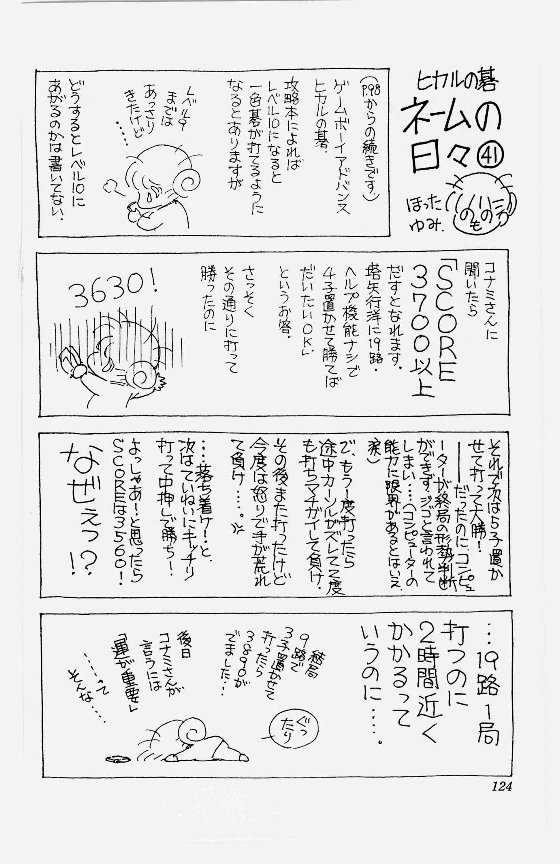 ヒカルの碁
ネームの
日々㊶
ほった
ゆみ
(P.98からの続きです)
ゲームボーイアドバンス
ヒカルの碁.
攻略本によれば
レベル10になると
一色碁が打てるように
なるとありますが
レベル9
までは
あっさり
きたけど
……
どうするとレベル10に
あがるのかは書いてない.
コナミさんに
聞いたら
「SCORE
3700以上
だすとなれます.
塔矢行洋に19路.
ヘルプ機能ナシで
4子置かせて勝てば
だいたいOK」
というお答.
さっそく
その通りに打って
勝ったのに
3630!
それで次は5子置か
せて打って大勝!
——だったのにコンピュ
ーターが終局の形勢判断
ができず.ジゴと言われて
しまい…(コンピューターの
能力に限界があるとはいえ.
涙)
で、もう1度打ったら
途中カーソルがズレて2度
も打ちマチがイして負け.
その後また打ったけど
今度は怒りで手が荒れ
て負け….
…落ち着け!と、
次はていねいにキッチリ
打って中押しで勝ち!.
よっしゃあ!と思ったら
SCOREは3560!
なぜえっ!?
…19路1局
打つのに
2時間近く
かかるって
いうのに….
ぐっ
たり
結局
9路で
3子置かせて
打ったら
3890が
でました…
後日
コナミさんが
言うには
「運が重要」
……って
そんな…
124